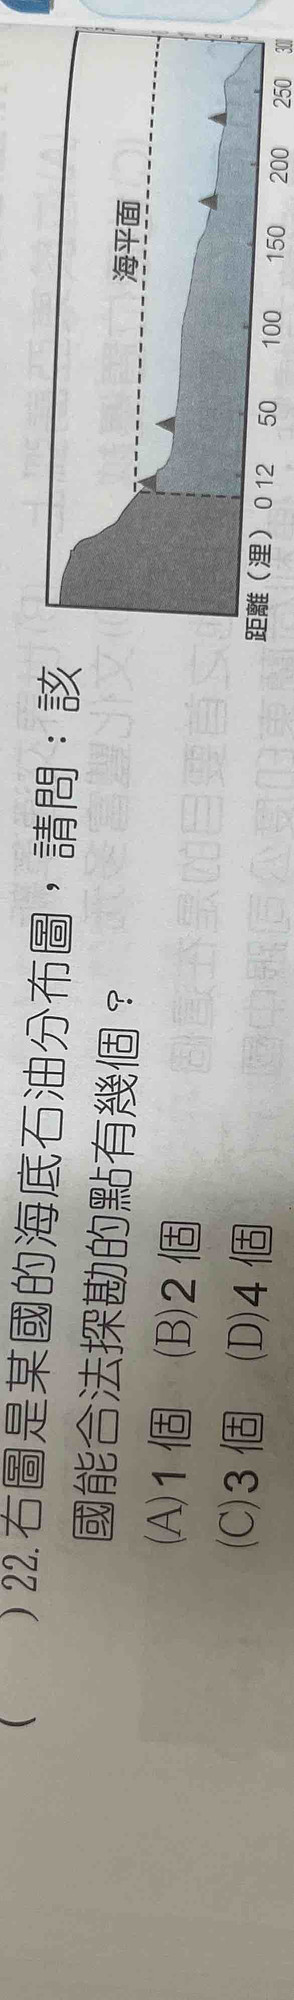 (　　)22.右圖是某國的海底石油分布圖，請問：該
國能合法探勘的點有幾個？
(A)1個　(B)2個
(C)3個　(D)4個
海平面
距離（浬） 0 12 50 100 150 200 250 300